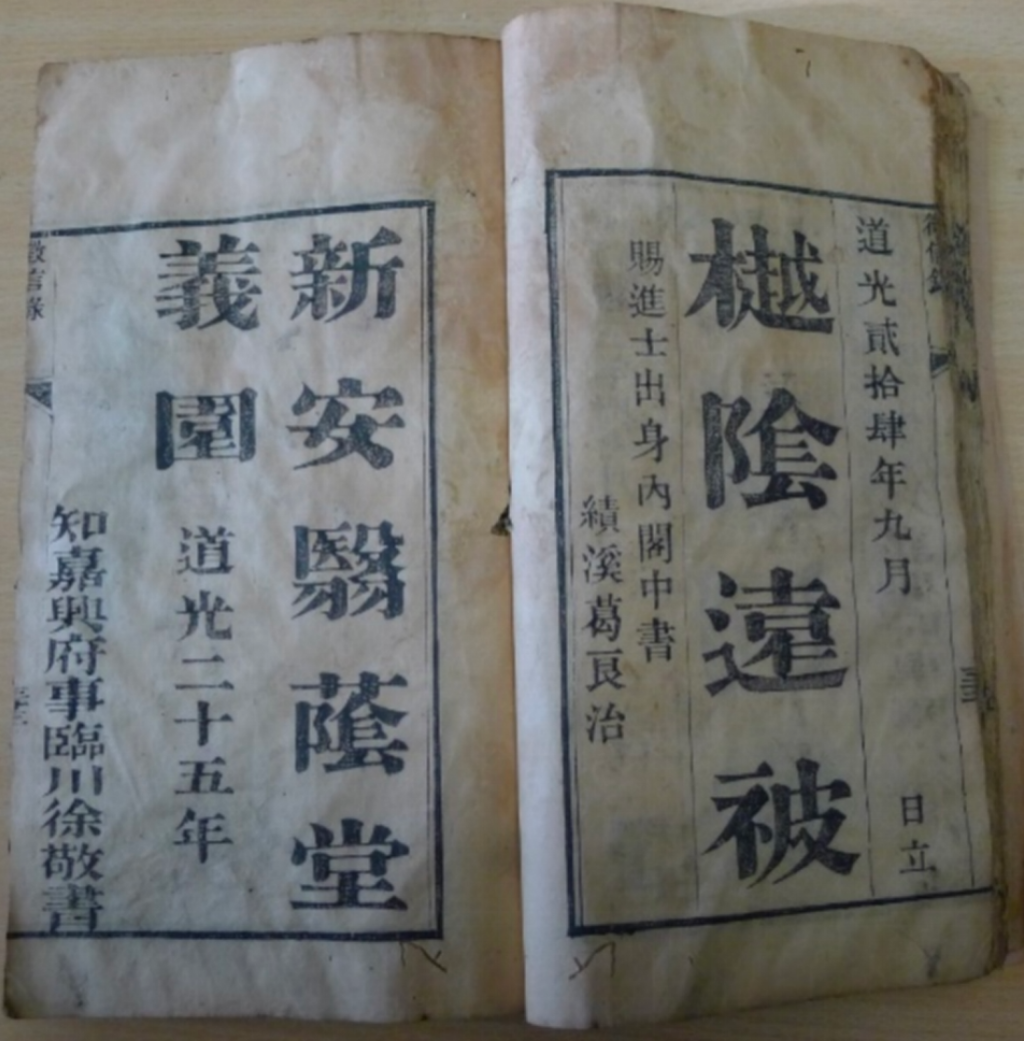 道光貳拾肆年九月 日立
樾蔭遠被
賜進士出身內閣中書
績溪葛良治
新安翳蔭堂
義園
道光二十五年
知嘉興府事臨川徐敬書
徵信錄